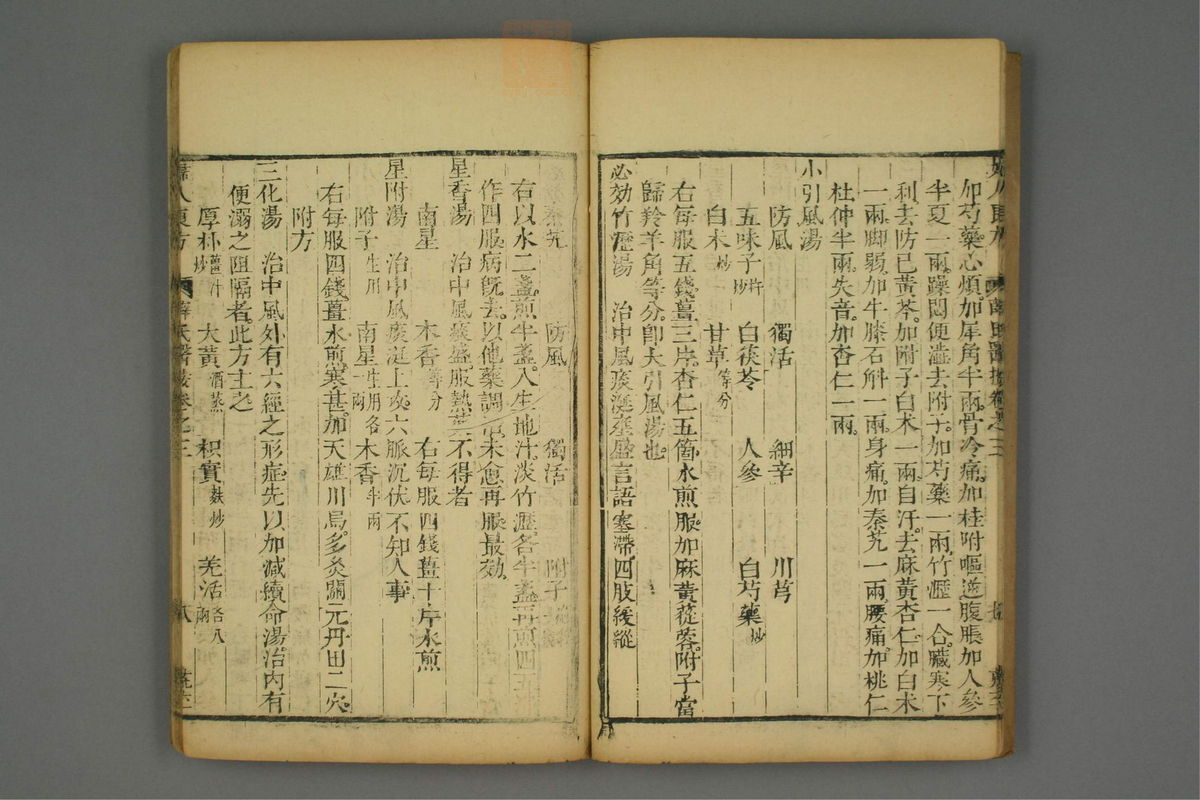 加芍藥心煩加犀角半兩骨冷痛加桂附嘔逆腹脹加人參
半夏一兩躁悶便澁去附子加芍藥一兩竹瀝一合臟寒下
利去防已黃芩加附子白朮一兩自汗去麻黃杏仁加白朮
一兩脚弱加牛膝石斛一兩身痛加秦艽一兩腰痛加桃仁
杜仲半兩失音加杏仁一兩
小引風湯
防風 獨活 細辛 川芎
五味子杵炒 白茯苓 人參 白芍藥炒
白朮炒 甘草等分
右每服五錢薑三片杏仁五箇水煎服加麻黃蓯蓉附子當
歸羚羊角等分卽大引風湯也
必効竹瀝湯 治中風痰涎壅盛言語蹇滯四肢緩縱
秦艽 防風 獨活 附子
右以水二盞煎半盞入生地汁淡竹瀝各半盞再煎四五
作四服病旣去以他藥調治未愈再服最効
星香湯 治中風痰盛服熱藥不得者
南星 木香等分 右每服四錢薑十片水煎
星附湯 治中風痰涎上攻六脈沉伏不知人事
附子生用 南星生用各一兩 木香半兩
右每服四錢薑水煎寒甚加天雄川烏多灸關元丹田二穴
附方
三化湯 治中風外有六經之形症先以加減續命湯治內有
便溺之阻隔者此方主之
厚朴薑汁炒 大黃酒蒸 枳實麩炒 羌活各八兩
婦人良方 薛氏醫按卷之三 八